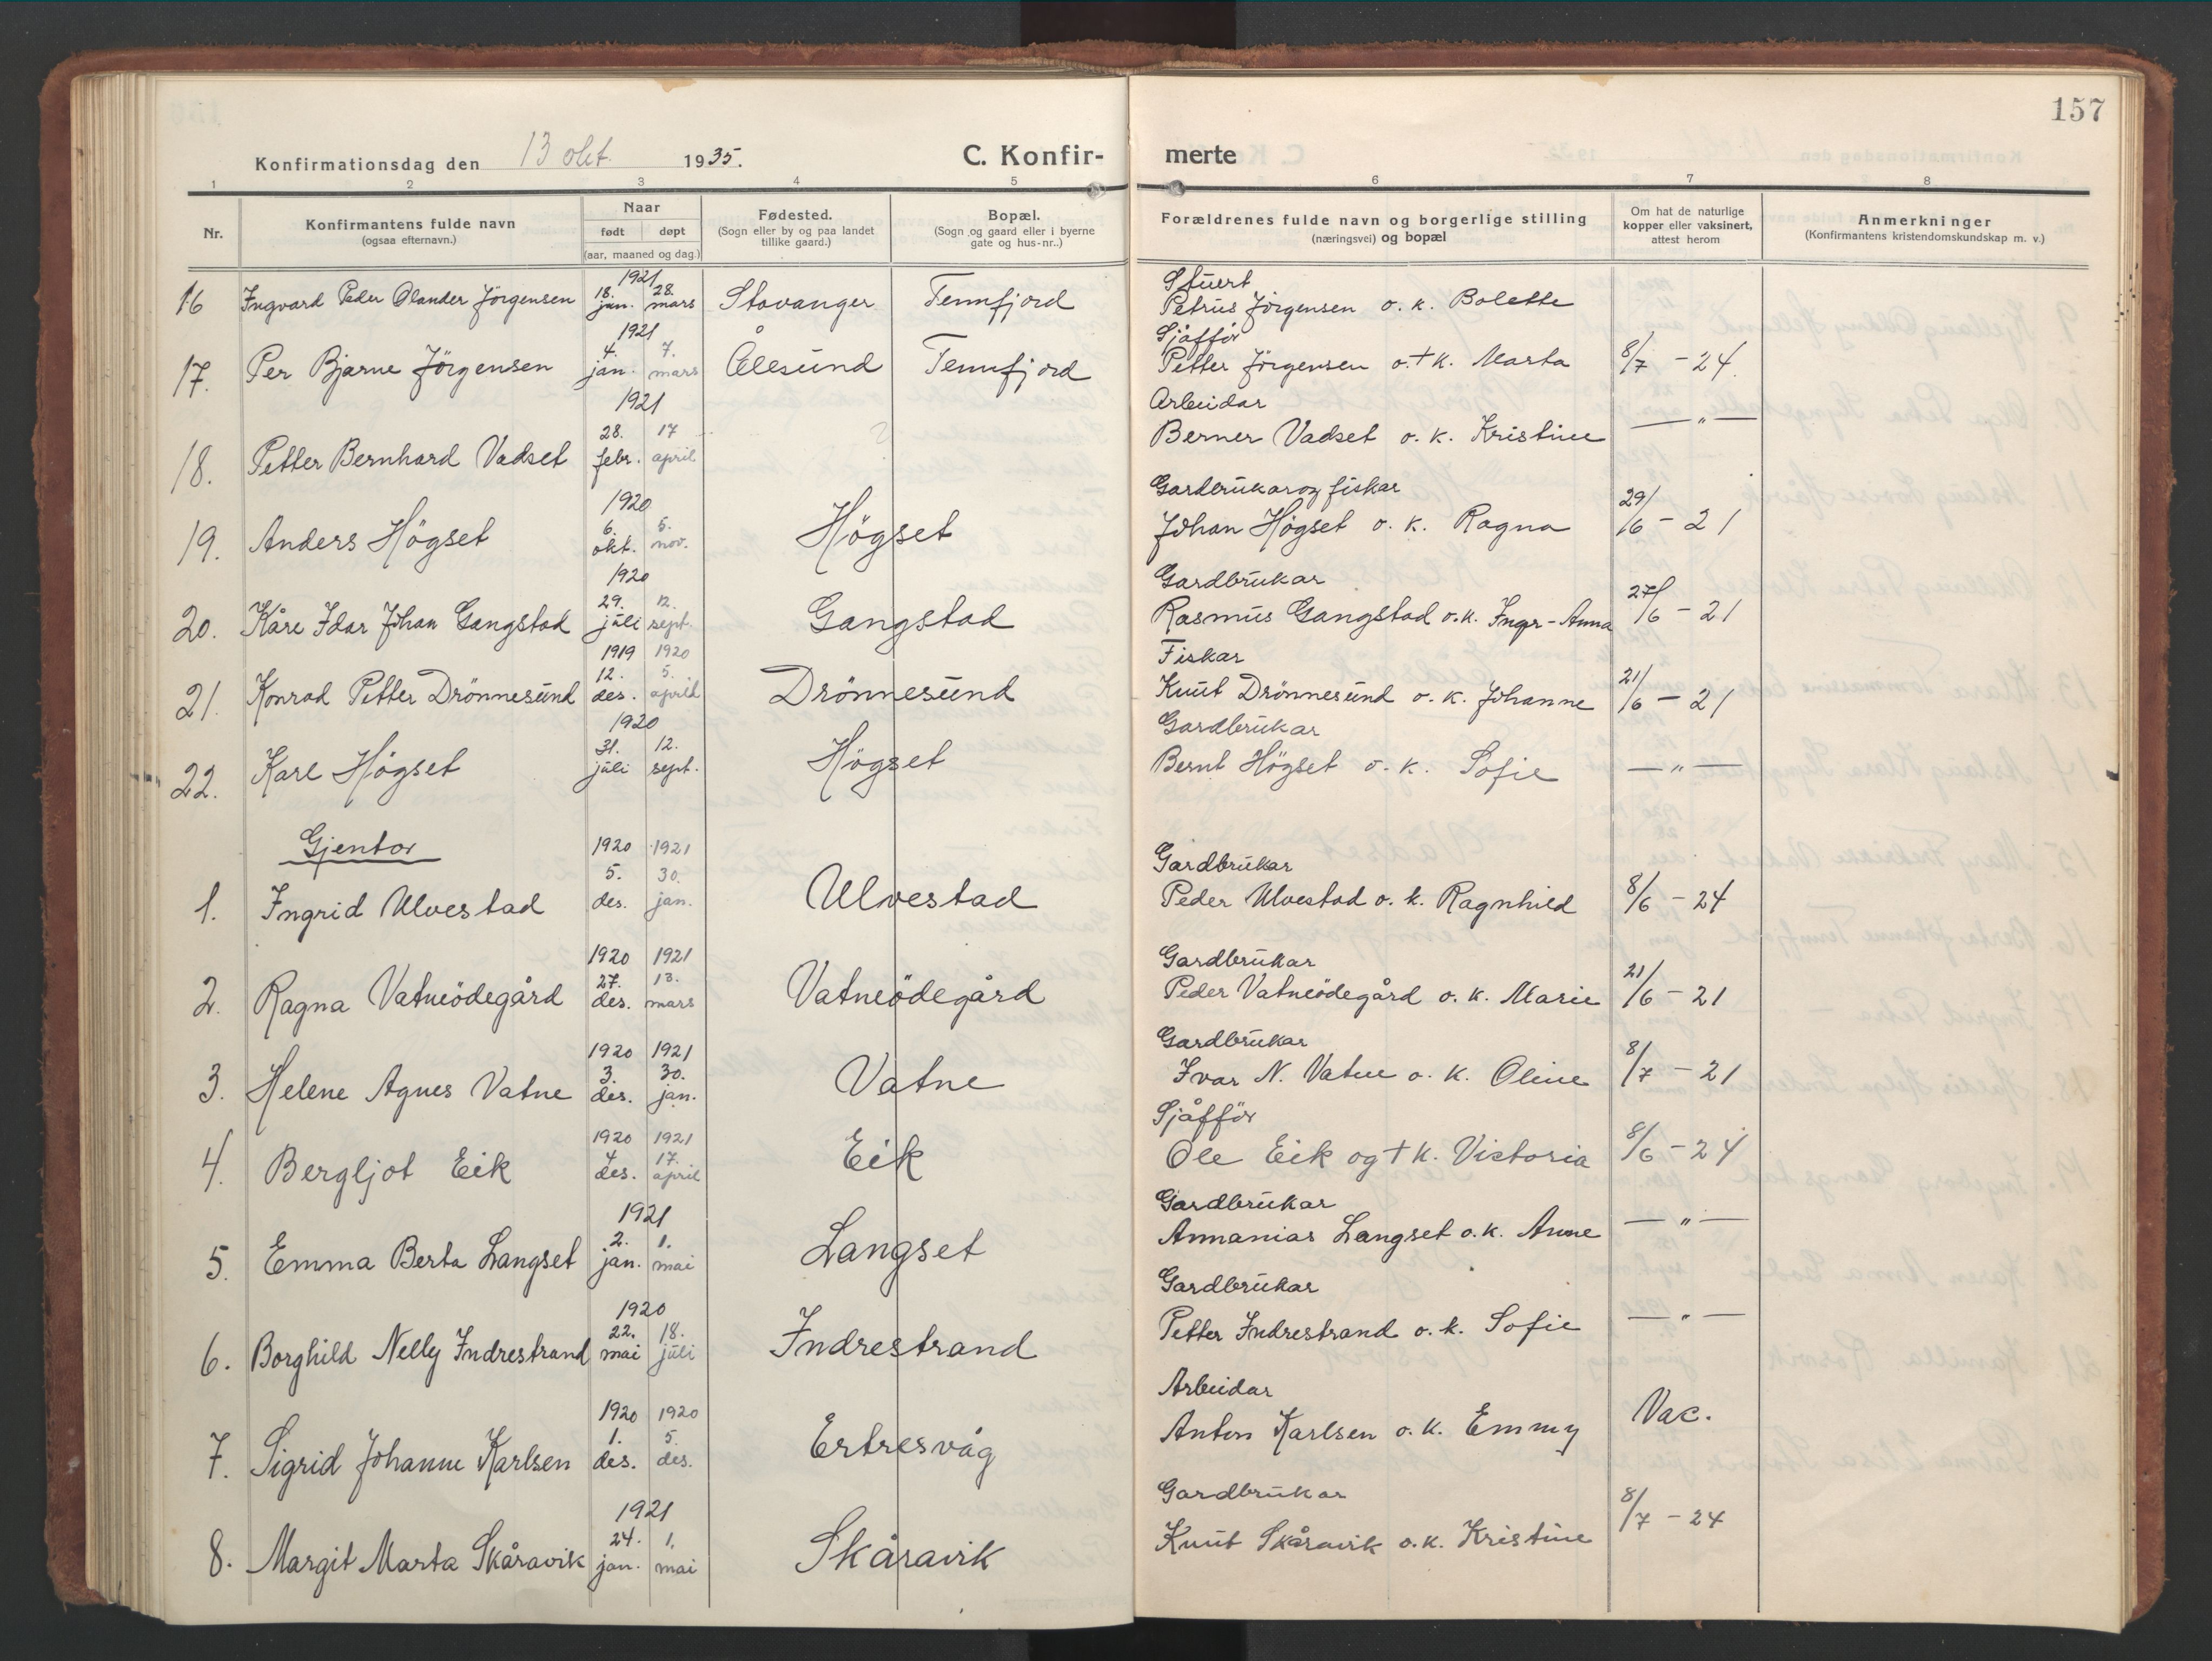 157
Konfirmationsdag den 13 okt. 1935. C. Konfirmerte
1 2 3 4 5 6 7 8
Nr. Konfirmantens fulde navn (ogsaa efternavn.) Naar født døpt (aar, maaned og dag.) Fødested. (Sogn eller by og paa landet tillike gaard.) Bopæl. (Sogn og gaard eller i byerne gate og hus-nr..) Forældrenes fulde navn og borgerlige stilling (næringsvei) og bopæl Om hat de naturlige kopper eller vaksinert, attest herom Anmerkninger (Konfirmantens kristendomskundskap m. v.)
16 Ingvard Peder Olander Jörgensen 1921 18. jan. 28. mars Stavanger Tennfjord Stuert Petrus Jörgensen o. k. Bolette
17. Per Bjarne Jörgensen 1921 4. jan. 7. mars Ålesund Tennfjord Sjåfför Petter Jörgensen o. + k. Marta 8/7 - 24
18. Petter Bernhard Vadset 1921 28. febr. 17 april Arbeidar Berner Vadset o. k. Kristine — " —
19. Anders Högset 1920 6. okt. 5. nov. Högset Gardbrukar og fiskar Johan Högset o. k. Ragna 29/6 - 21
20. Kåre Idar Johan Gangstad 1920 29. juli 12. sept. Gangstad Gardbrukar Rasmus Gangstad o. k. Ingr-Anna 27/6 - 21
21. Konrad Petter Drönnesund 1919 12. des. 1920 5. april Drönnesund Fiskar Knut Drönnesund o. k. Johanne 21/6 - 21
22. Karl Högset 1920 31. juli 12. sept. Högset Gardbrukar Bernt Högset o. k. Sofie — " —
Gjentor
1. Ingrid Ulvestad 1920 5. des. 1921 30. jan. Ulvestad Gardbrukar Peder Ulvestad o. k. Ragnhild 8/6 - 24
2. Ragna Vatneödegård 1920 27. des. 1921 13. mars Vatneödegård Gardbrukar Peder Vatneödegård o. k. Marie 21/6 - 21
3. Helene Agnes Vatne 1920 3. des. 1921 30. jan. Vatne Gardbrukar Ivar N. Vatne o. k. Oline 8/7 - 21
4. Bergljot Eik 1920 4 des. 1921 17. april Eik Sjåfför Ole Eik og + k. Victoria 8/6 - 24
5. Emma Berta Langset 1921 2. jan. 1. mai Langset Gardbrukar Annanias Langset o. k. Anne — " —
6. Borghild Nelly Indrestrand 1920 22. mai 18. juli Indrestrand Gardbrukar Petter Indrestrand o. k. Sofie — " —
7. Sigrid Johanne Karlsen 1920 1. des. 1920 5. des. Ertresvåg Arbeidar Anton Karlsen o. k. Emmy Vac.
8. Margit Marta Skåravik 1921 24. jan. 1. mai Skåravik Gardbrukar Knut Skåravik o. k. Kristine 8/7 - 24